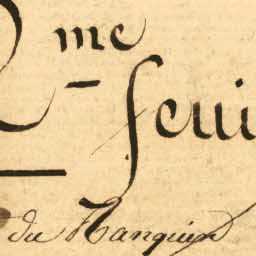 2me feui
du Nanquin